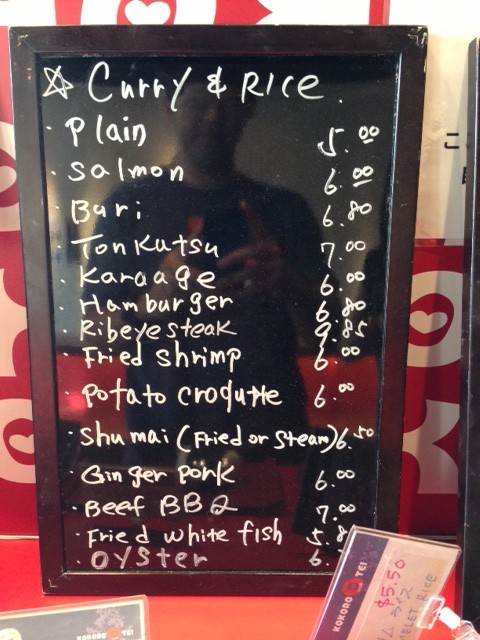 ☆ Curry & RICE.
· Plain 5.00
· Salmon 6.00
· Buri 6.80
· Tonkutsu 7.00
· Karaage 6.00
· Hamburger 6.80
· Ribeye steak 9.85
· Fried shrimp 6.00
· Potato croqutte 6.00
· Shumai (Fried or Steam) 6.50
· Ginger pork 6.00
· Beef BBQ 7.00
· Fried white fish 5.8
· OYSTER 6.
KOKORO TEI
$5.50
ムライス
ELET RICE
KOKORO TEI